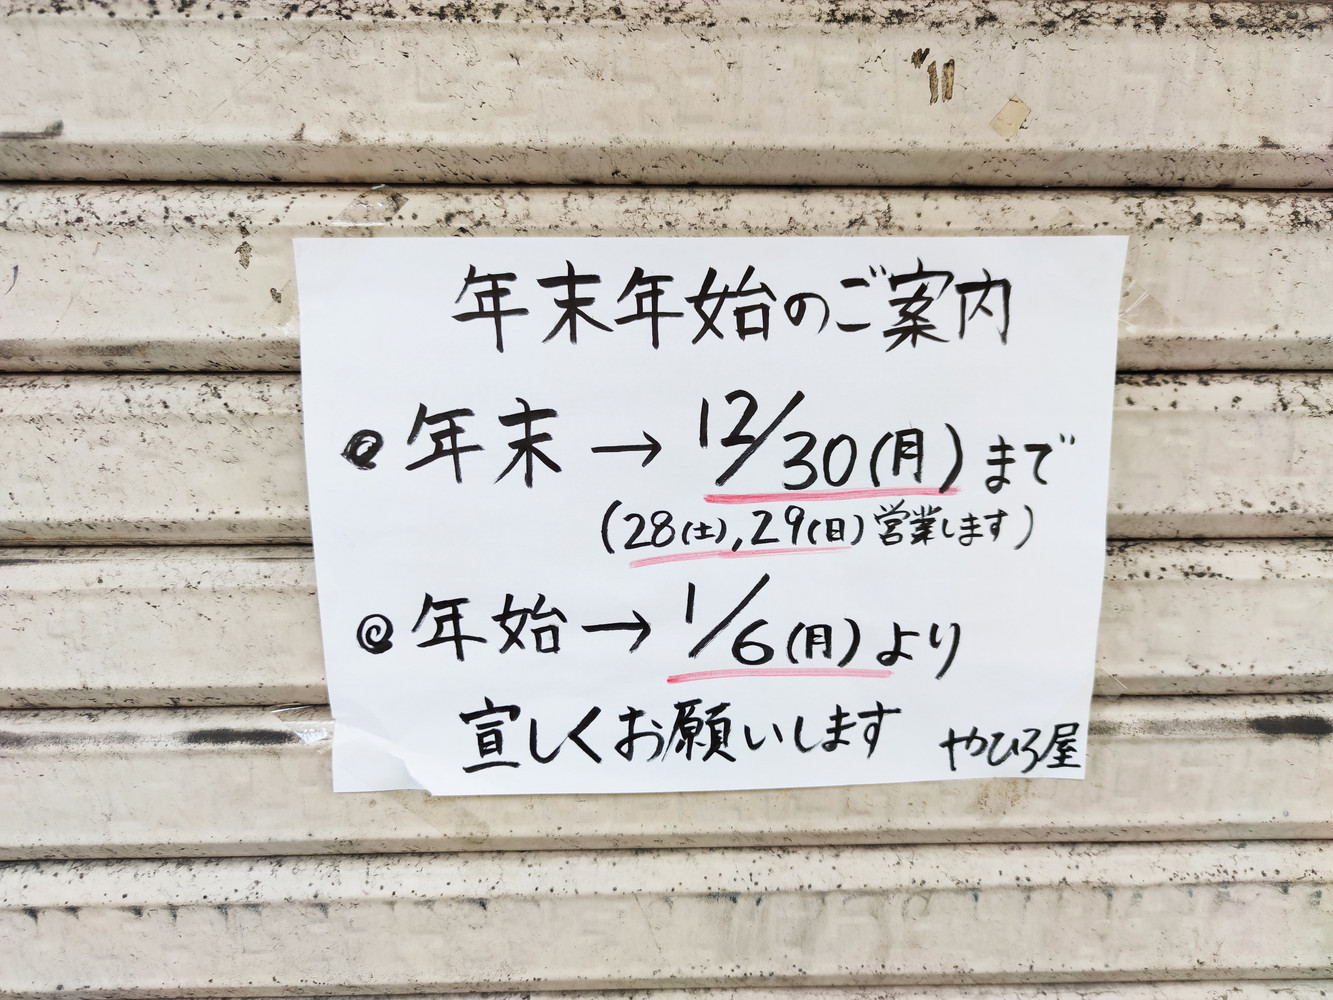 年末年始のご案内
◎年末→12/30(月)まで
(28(土),29(日)営業します)
◎年始→1/6(月)より
宜しくお願いします
やひろ屋